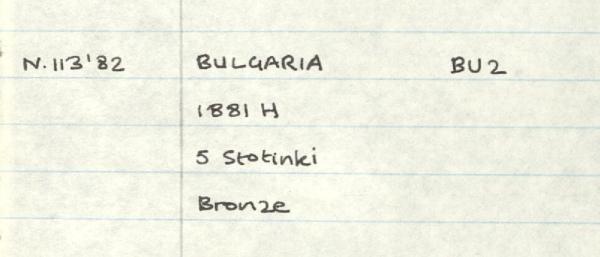 N.113'82 BULGARIA BU2
1881 H
5 Stotinki
Bronze